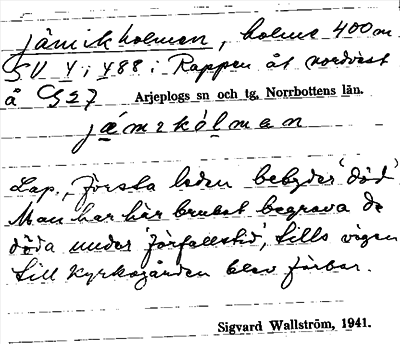 Jämikholmen, holme 400 m
SV Y i 488 i Rappen åt nordväst
å G 27 Arjeplogs sn och tg, Norrbottens län.
jämekolman
Lap., Första leden betyder 'död'
Man har här brukat begrava de
döda under 'förfallstid', tills vägen
till Kyrkogården blev förbar.
Sigvard Wallström, 1941.